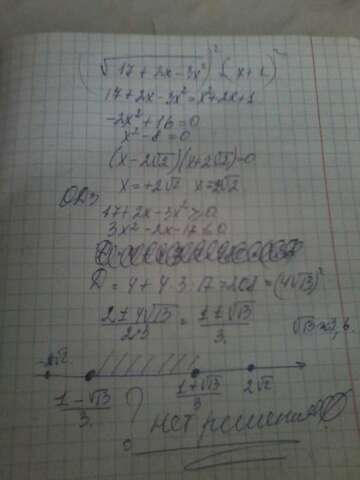 (√17 + 2x - 3x²)² = (x + 1)²
17 + 2x - 3x² = x² + 2x + 1
-2x² + 16 = 0
x² - 8 = 0
(x - 2√2)(x + 2√2) = 0
x = +2√2 x = -2√2
ОДЗ
17 + 2x - 3x² ≥ 0
3x² - 2x - 17 ≤ 0
D = 4 + 4·3·17 = 208 = (4√13)²
2 ± 4√13 / 2·3 = 1 ± √13 / 3
√13 ≈ 3,6
-2√2
1 - √13 / 3 1 + √13 / 3 2√2
?
нет решения